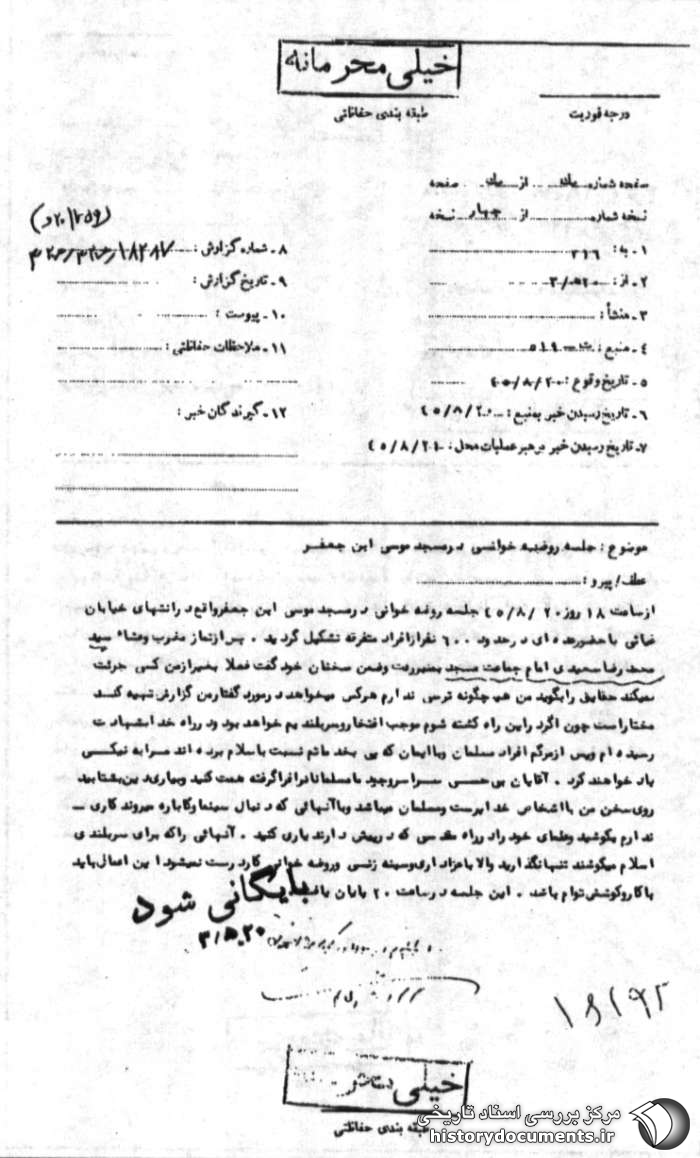 خیلی محرمانه
طبقه بندی حفاظتی
درجه فوریت
صفحه شماره یک از یک صفحه
نسخه شماره از چهار نسخه
۱ـ به : ۳۱۶
۲ـ از : ۲۰ﻫ/۳
۳ـ منشأ :
۴ـ منبع : ۵۱۹
۵ـ تاریخ وقوع : ۴۵/۸/۲۰
۶ـ تاریخ رسیدن خبر به منبع : ۴۵/۸/۲۰
۷ـ تاریخ رسیدن خبر به رهبر عملیات محل : ۴۵/۸/۲۱
۸ـ شماره گزارش :
۹ـ تاریخ گزارش :
۱۰ـ پیوست :
۱۱ـ ملاحظات حفاظتی :
۱۲ـ گیرندگان خبر :
موضوع : جلسه روضه خوانی در مسجد موسی ابن جعفر
عطف/ پیرو :
از ساعت ۱۸ روز ۲۰ /۴۵/۸ جلسه روضه خوانی در مسجد موسی ابن جعفر واقع در انتهای خیابان
غیاثی با حضور عده ای در حدود ۶۰۰ نفر از افراد متفرقه تشکیل گردید . پس از نماز مغرب و عشاء سید
محمدرضا سعیدی امام جماعت مسجد بمنبر رفت وضمن سخنان خود گفت فعلا بغیر از من کسی جرئت
نمیکند حقایق را بگوید من هیچگونه ترسی ندارم هرکس میخواهد در مورد گفتار من گزارش تهیه کند
مختار است چون اگر در این راه کشته شوم موجب افتخار و سربلندیم خواهد بود و در راه خدا بشهادت
رسیده ام و پس از مرگم افراد مسلمان و باایمان که پی بخدماتم نسبت باسلام برده اند مرا به نیکی
یاد خواهند کرد . آقایان بی حسی سراسر وجود ما مسلمانان را فرا گرفته همت کنید و بیاری دین بشتابید
روی سخن من با اشخاص خداپرست و مسلمان میباشد و با آنهائی که دنبال سینما و کاباره میروند کاری ـ
ندارم بکوشید و علمای خود را در راه مقدسی که در پیش دارند یاری کنید . آنهائی را که برای سربلندی
اسلام میکوشند تنها نگذارید والا با عزاداری و سینه زنی و روضه خوانی کار درست نمیشود این اعمال باید
با کار و کوشش توأم باشد . این جلسه در ساعت ۲۰ پایان یافت
بایگانی شود
۲۰ﻫ/۳
۱۸۱۹۲
خیلی
طبقه بندی حفاظتی
مرکز بررسی اسناد تاریخی
historydocuments.ir